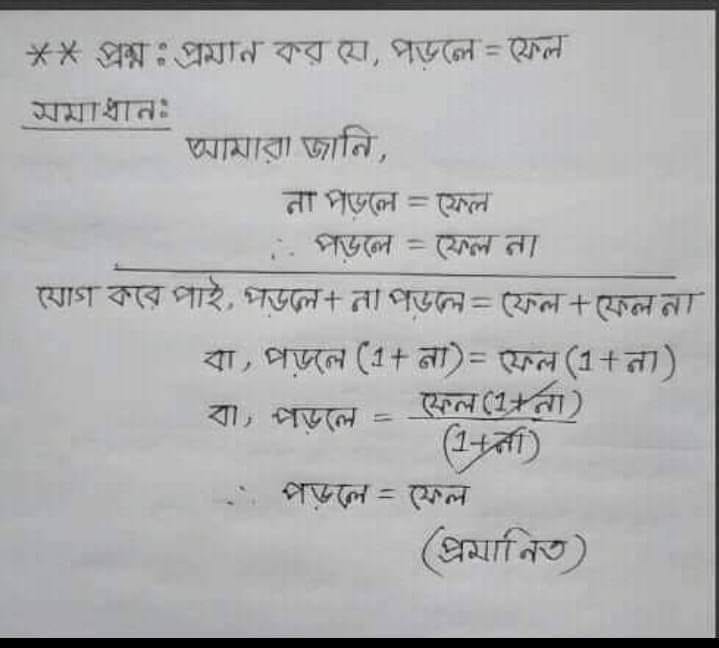 ** প্রশ্ন : প্রমান কর যে, পড়লে = ফেল
সমাধান:
আমারা জানি,
না পড়লে = ফেল
∴ পড়লে = ফেল না
যোগ করে পাই, পড়লে + না পড়লে = ফেল + ফেল না
বা, পড়লে (1 + না) = ফেল (1 + না)
বা, পড়লে = ফেল (1 + না) / (1 + না)
∴ পড়লে = ফেল
(প্রমানিত)